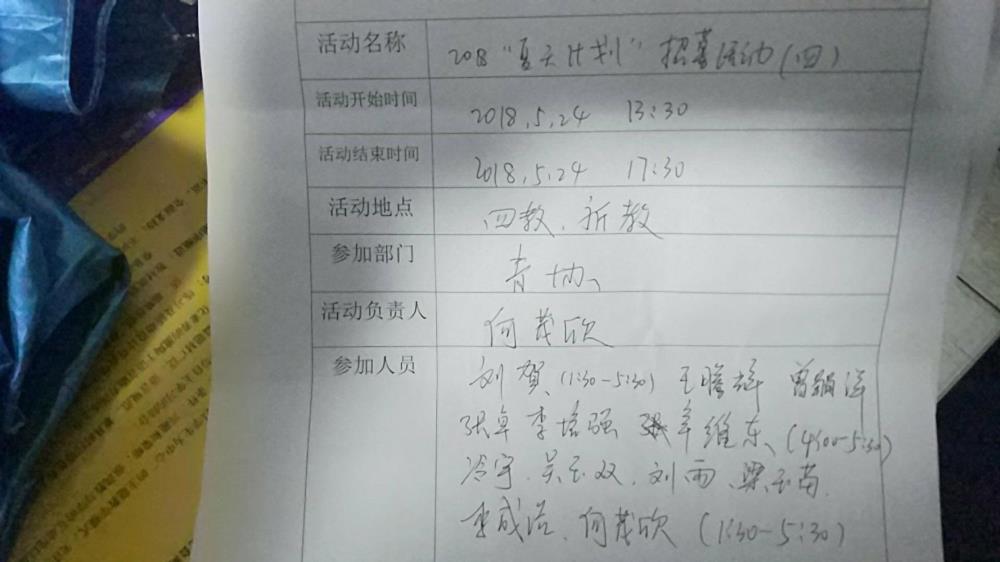 活动名称 2018“夏天计划”招募活动(四)
活动开始时间 2018.5.24 13:30
活动结束时间 2018.5.24 17:30
活动地点 四教、新教
参加部门 青协、
活动负责人 何茂欣
参加人员 刘贺(1:30-5:30) 王 曾
张卓 李培强 维东、(4:00-5:30)
冷宇、吴玉双、刘雨、梁
李成浩、何茂欣(1:30-5:30)